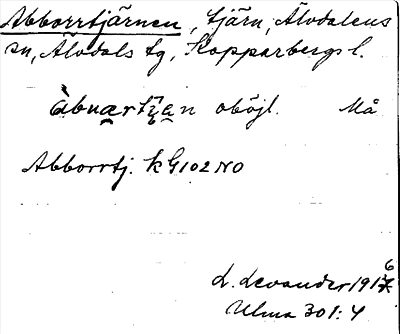 Abborrtjärnen, tjärn, Älvdalens
sn, Älvdals tg, Kopparbergs l.
oböjl. Må
Abborrtj. kG102 NO
L. Levander 1916
Ulma 301:4